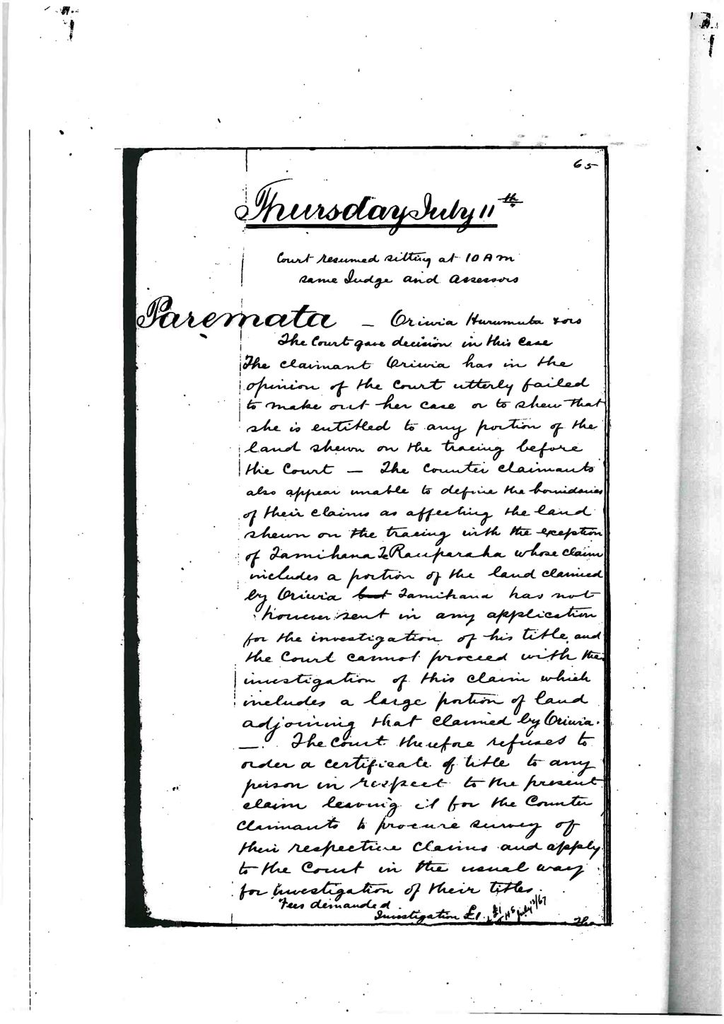 65
Thursday July 11th
Court resumed sitting at 10 A m
same Judge and Assessors
Paremata — Oriwia Hurumutu & ors
The Court gave decision in this case
The claimant Oriwia has in the
opinion of the Court utterly failed
to make out her case or to shew that
she is entitled to any portion of the
land shewn on the tracing before
the Court — The Counter claimants
also appear unable to define the boundaries
of their claims as affecting the land
shewn on the tracing with the exception
of Tamihana Te Rauparaha whose claim
includes a portion of the land claimed
by Oriwia but Tamihana has not
however sent in any application
for the investigation of his title and
the Court cannot proceed with the
investigation of this claim which
includes a large portion of land
adjoining that claimed by Oriwia.
— The Court therefore refuses to
order a certificate of title to any
person in respect to the present
claim leaving it for the Counter
Claimants to procure survey of
their respective Claims and apply
to the Court in the usual way
for Investigation of their titles.
Fees demanded
Investigation £1. July 12/67